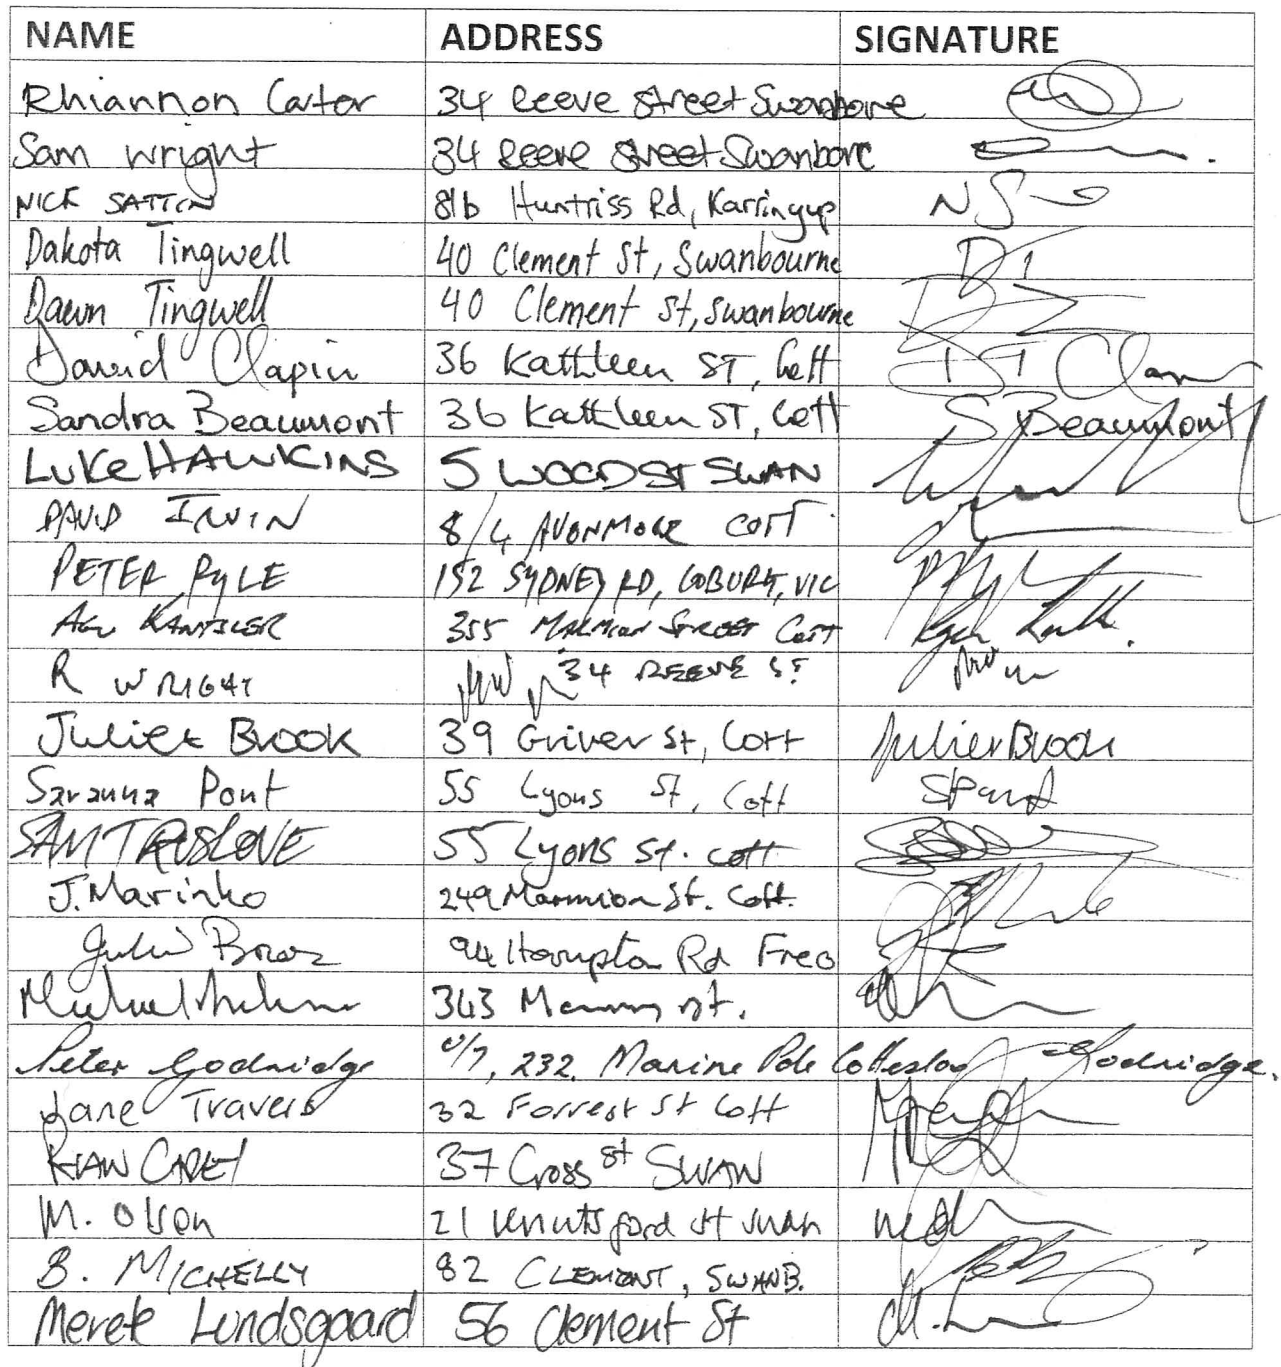 NAME ADDRESS SIGNATURE
Rhiannon Carter 34 Reeve Street Swanborne
Sam Wright 34 Reeve Street Swanborne
NICK SATTIN 81b Huntriss Rd, Karringup NS
Dakota Tingwell 40 Clement St, Swanbourne DT
Dawn Tingwell 40 Clement St, Swanbourne
David Clapin 36 Kathleen ST, Cott
Sandra Beaumont 36 Kathleen ST, Cott S Beaumont
LUKE HAWKINS 5 WOOD ST SWAN
DAVID IRVIN 8/4 AVONMORE COTT
PETER PYLE 152 SYDNEY RD, COBURG, VIC
355 MARMION STREET COTT
R WRIGHT 34 REEVE ST
Juliet Brook 39 Griver St, Cott Juliet Brook
Savanna Pont 55 Lyons St, Cott SPont
SAM TRUSLOVE 55 Lyons St. Cott
J. Marinko 249 Marmion St. Cott.
94 Hampton Rd Freo
343
Peter Godridge 232, Marine Pde Cottesloe Godridge.
Jane Travers 32 Forrest St Cott
37 Cross St SWAN
M. Olsen 21 Knutsford St Swan
B. MICHELLY 82 CLEMENT, SWANB.
Merete Lundsgaard 56 Clement St